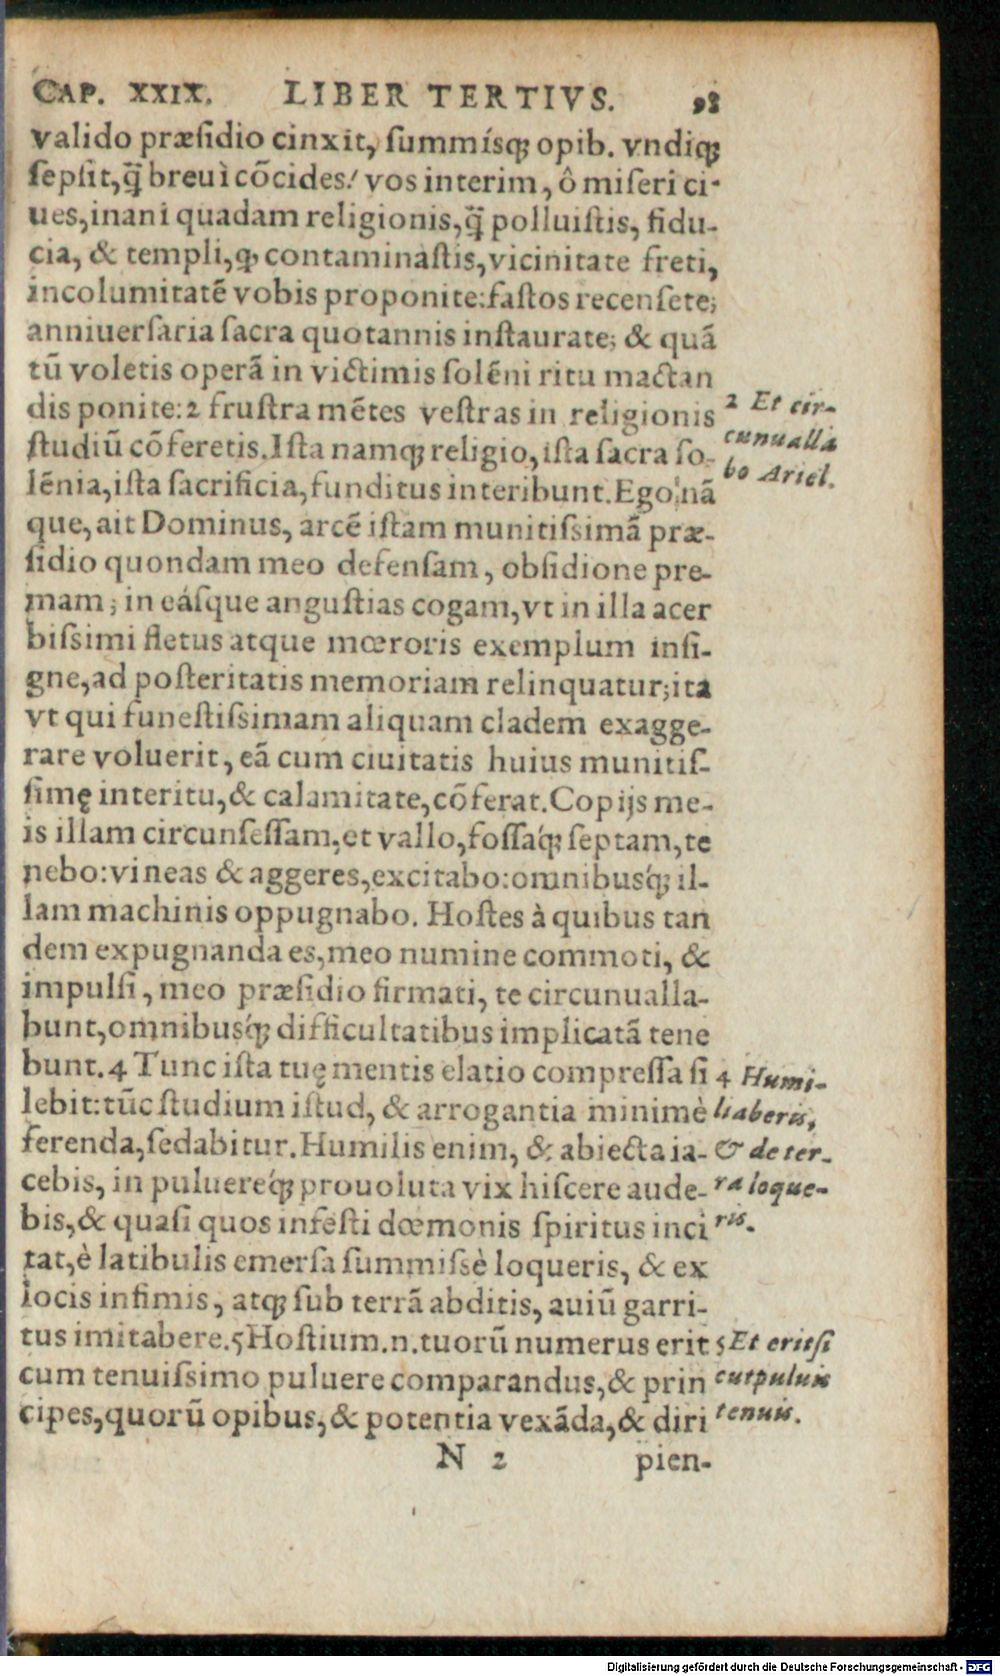 CAP. XXIX. LIBER TERTIVS. 98
valido præsidio cinxit, summísq; opib. vndiq;
sepsit, q̃ breui cõcides! vos interim, ô miseri ci-
ues, inani quadam religionis, q̃ polluistis, fidu-
cia, & templi, q, contaminastis, vicinitate freti,
incolumitatẽ vobis proponite: fastos recensete;
anniuersaria sacra quotannis instaurate; & quã
tũ voletis operã in victimis solẽni ritu mactan
dis ponite: 2 frustra mẽtes vestras in religionis
studiũ cõferetis. Ista namq; religio, ista sacra so-
lẽnia, ista sacrificia, funditus interibunt. Ego nã
que, ait Dominus, arcẽ istam munitissimã præ-
sidio quondam meo defensam, obsidione pre-
mam; in eásque angustias cogam, vt in illa acer
bissimi fletus atque mœroris exemplum insi-
gne, ad posteritatis memoriam relinquatur; ita
vt qui funestissimam aliquam cladem exagge-
rare voluerit, eã cum ciuitatis huius munitis-
simę interitu, & calamitate, cõferat. Copijs me-
is illam circunsessam, et vallo, fossaq́; septam, te
nebo: vineas & aggeres, excitabo: omnibusq́; il-
lam machinis oppugnabo. Hostes à quibus tan
dem expugnanda es, meo numine commoti, &
impulsi, meo præsidio firmati, te circunualla-
bunt, omnibusq́; difficultatibus implicatã tene
bunt. 4 Tunc ista tuę mentis elatio compressa si
lebit: tũc studium istud, & arrogantia minimè
ferenda, sedabitur. Humilis enim, & abiecta ia-
cebis, in puluereq́; prouoluta vix hiscere aude-
bis, & quasi quos infesti dœmonis spiritus inci
tat, è latibulis emersa summissè loqueris, & ex
locis infimis, atq; sub terrã abditis, auiũ garri-
tus imitabere. 5 Hostium .n. tuorũ numerus erit
cum tenuissimo puluere comparandus, & prin
cipes, quorũ opibus, & potentia vexãda, & diri
N 2 pien-
2 Et cir-
cunualla
bo Ariel.
4 Humi-
liaberis,
& de ter-
ra loque-
ris.
5 Et erit si
cut puluis
tenuis.
Digitalisierung gefördert durch die Deutsche Forschungsgemeinschaft - DFG